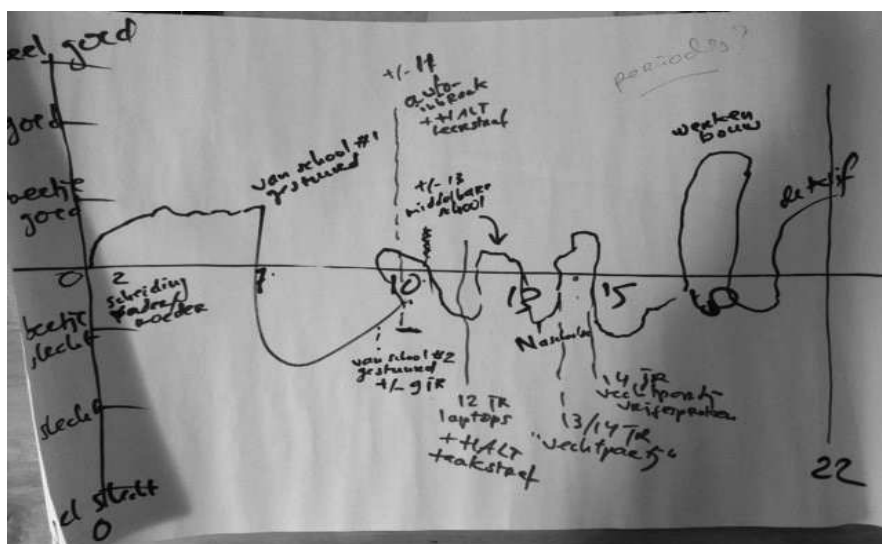 eel goed
goed
beetje
goed
0
beetje
slecht
slecht
el slecht
0
2
scheiding
vader/
moeder
7
van school #1
gestuurd
+/- 11
auto-
inbraak
+ HALT
leerstraf
+/- 13
middelbare
school
10
van school #2
gestuurd
+/- 9 JR
12 JR
laptops
+ HALT
taakstraf
13/14 JR
"vechtpartij"
15
14 JR
vechtpartij
vrijgesproken
werken
bouw
periodes?
22